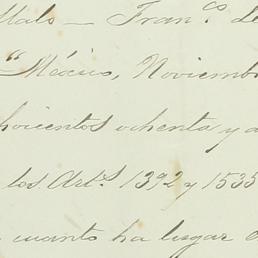 Malo — Franco. de
"México, Noviembr
hocientos ochenta y
los Arts. 1392 y 1535
cuanto ha lugar